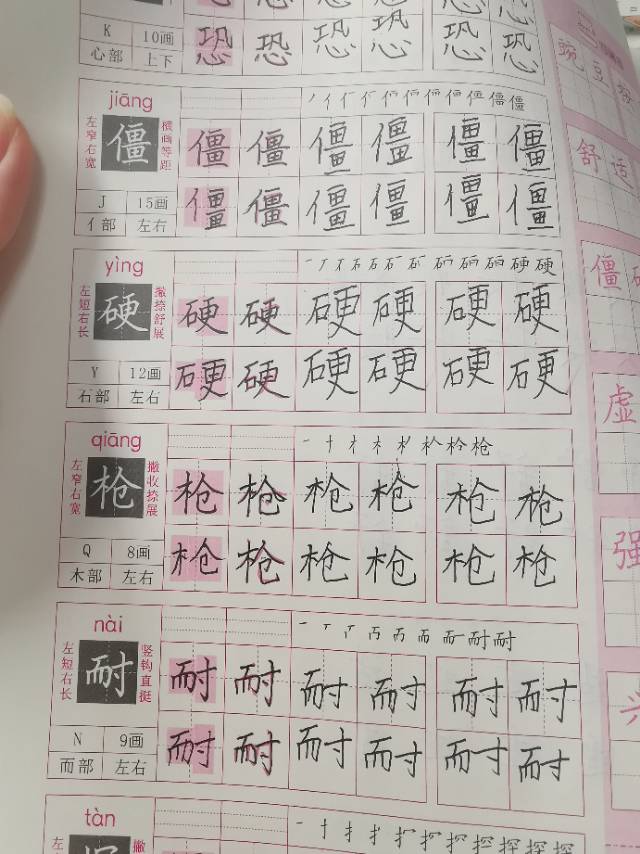 恐 恐 恐 恐 恐 恐
K 10画
心部 上下
恐 恐 恐 恐 恐 恐
豌 豆
jiāng
左窄右宽
僵
横画等距
僵 僵 僵 僵 僵 僵
J 15画
亻部 左右
僵 僵 僵 僵 僵 僵
舒 适
yìng
左短右长
硬
撇捺舒展
硬 硬 硬 硬 硬 硬
Y 12画
石部 左右
硬 硬 硬 硬 硬 硬
僵 硬
qiāng
左窄右宽
枪
撇收捺展
枪 枪 枪 枪 枪 枪
Q 8画
木部 左右
枪 枪 枪 枪 枪 枪
虚
强
nài
左短右长
耐
竖钩直挺
耐 耐 耐 耐 耐 耐
N 9画
而部 左右
耐 耐 耐 耐 耐 耐
兴
tàn